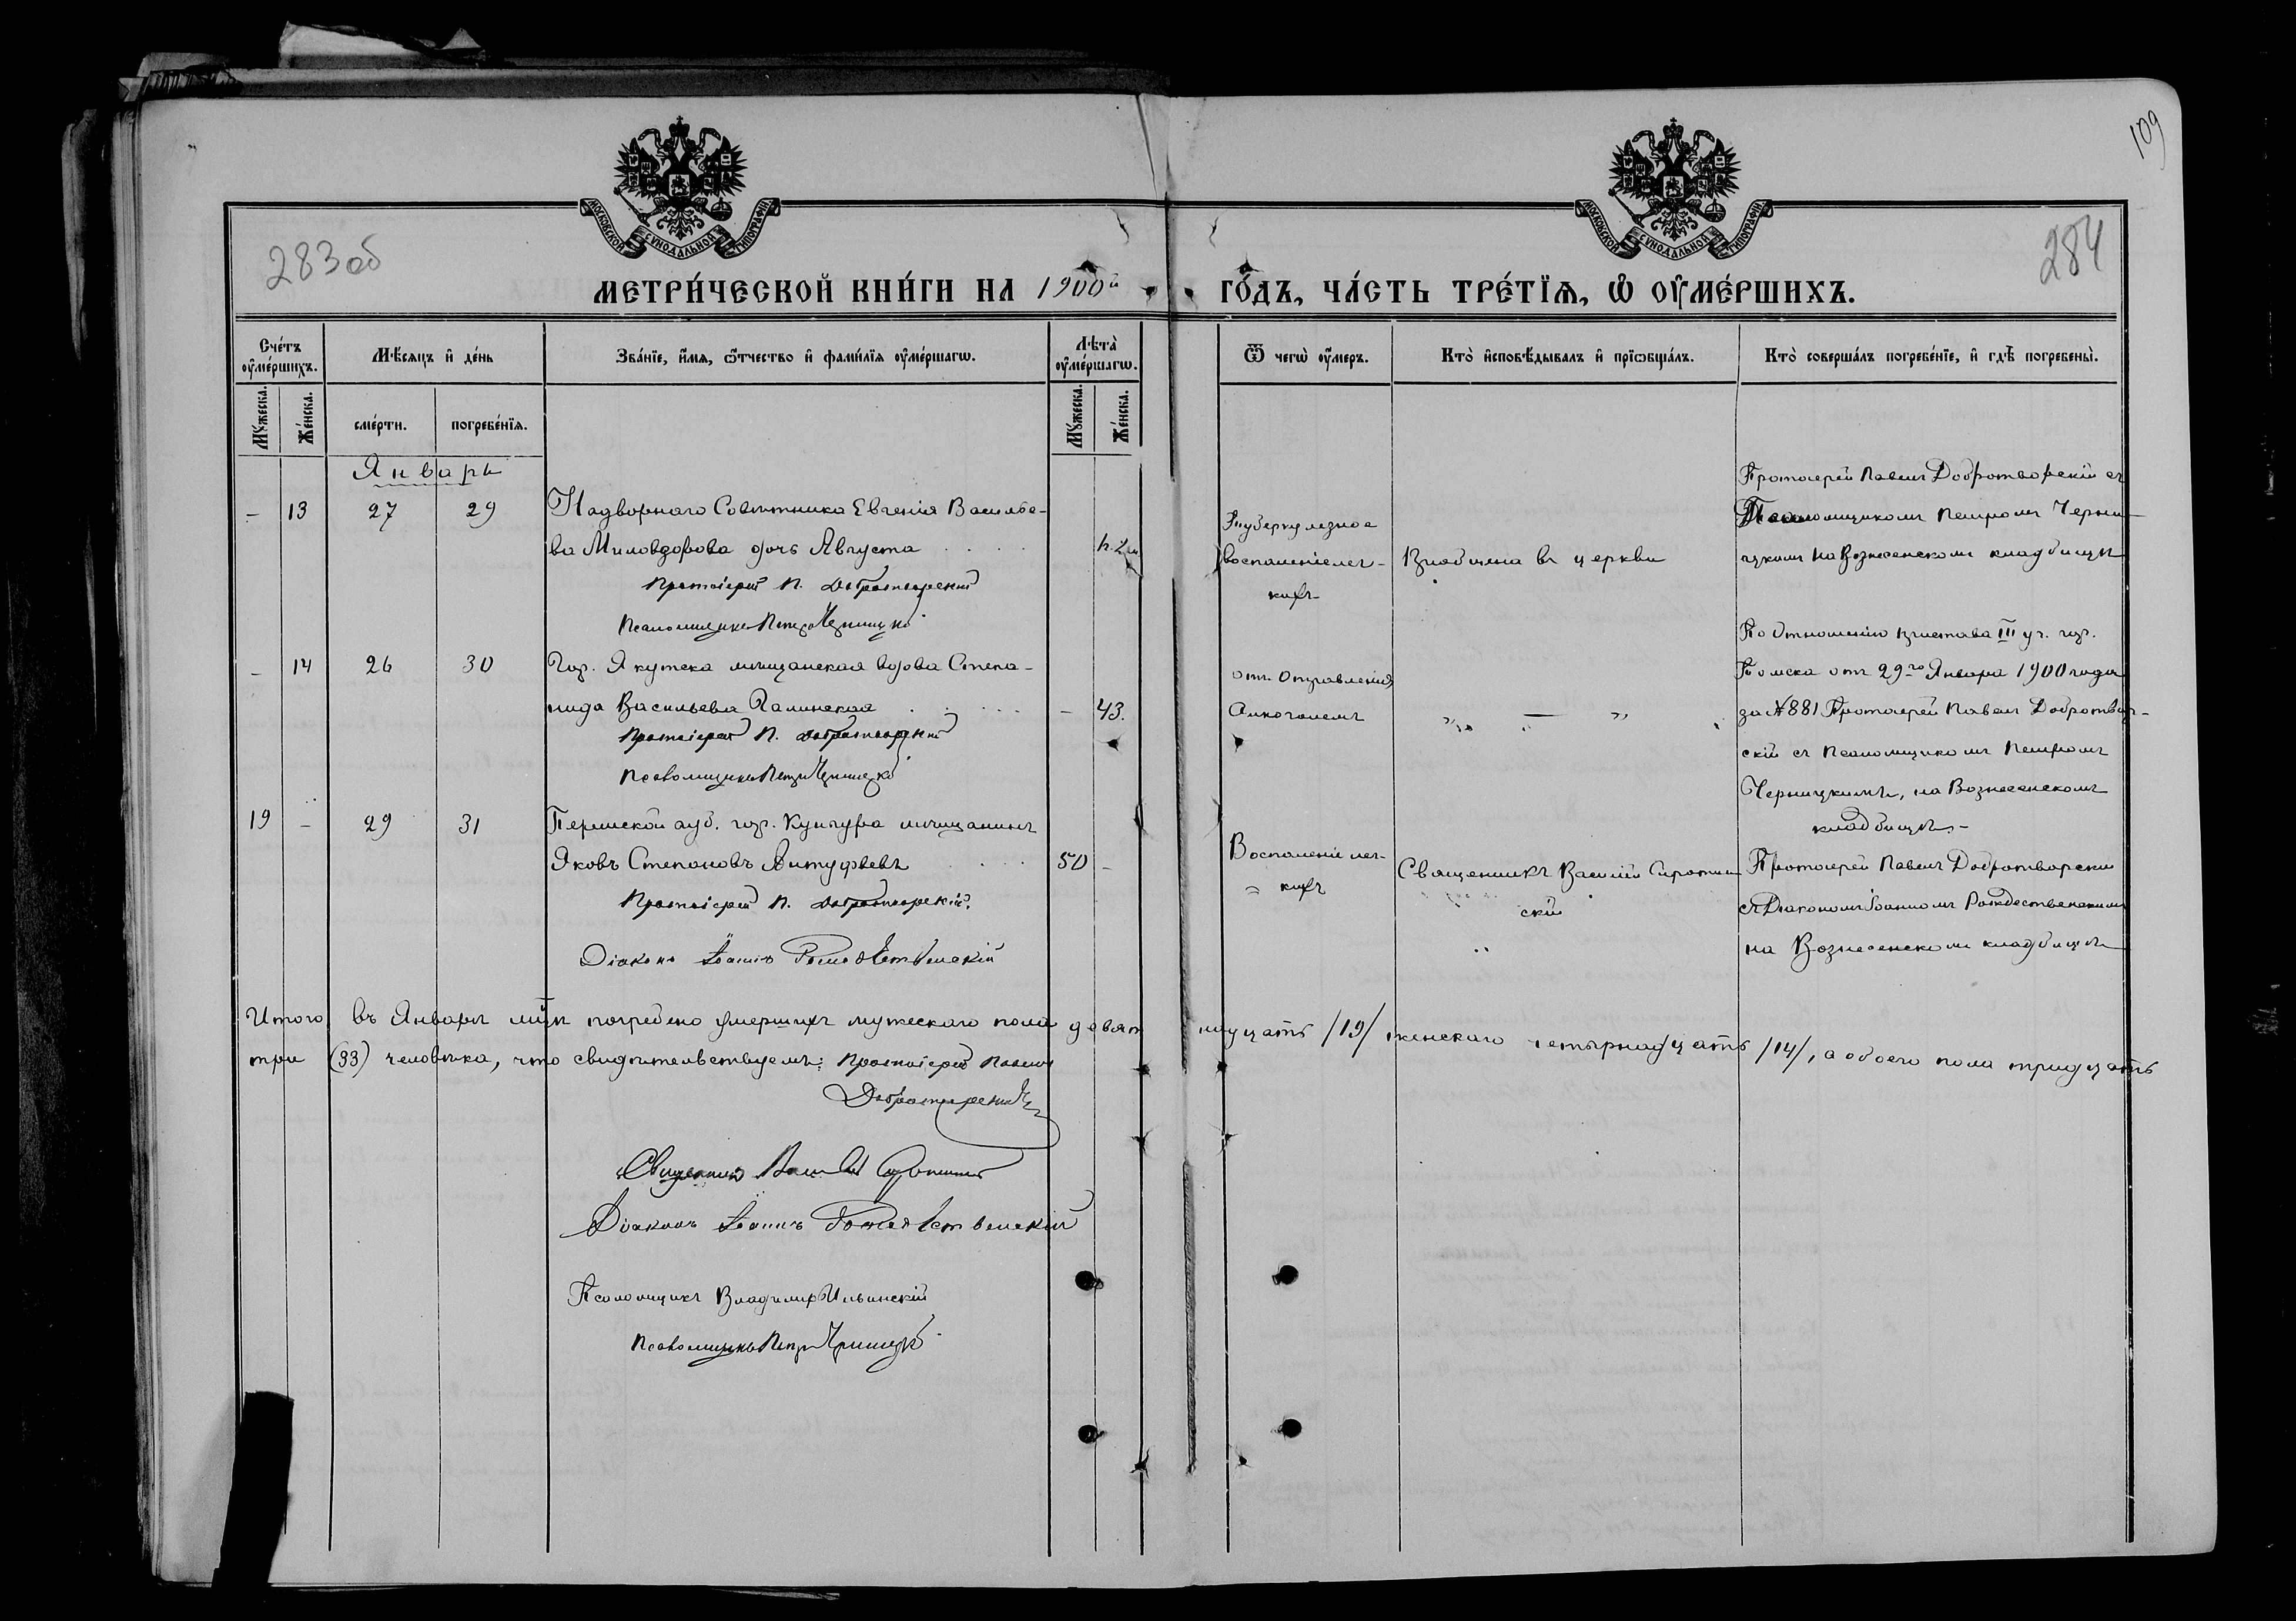 109
283об
284
МОСКОВСКОЙ СУНОДАЛЬНОЙ ТИПОГРАФИИ
МОСКОВСКОЙ СУНОДАЛЬНОЙ ТИПОГРАФИИ
МЕТРИ́ЧЕСКОЙ КНИ́ГИ НА 1900й ГО́ДЪ, ЧА́СТЬ ТРЕ́ТЇѦ, Ѡ ОУ҆МЕ́РШИХЪ.
Сче́тъ оу҆ме́ршихъ.
Мѣ́сѧцъ и҆ де́нь
Зва́нїе, и҆́мѧ, ѻ҆́тчество и҆ фами́лїѧ оу҆ме́ршагѡ.
Лѣ́та оу҆ме́ршагѡ.
Ѿ чегѡ̀ оу҆́меръ.
Кто̀ и҆сповѣ́дывалъ и҆ прїѡбща́лъ.
Кто̀ соверша́лъ погребе́нїе, и҆ гдѣ̀ погребены̀.
Мꙋ́жеска.
Же́нска.
сме́рти.
погребе́нїѧ.
Мꙋ́жеска.
Же́нска.
Январь
– 13 27 29 Надворнаго Совѣтника Евгенія Василье-
ва Миловзорова дочь Августа
Протоіерей П. Добротворскій
Псаломщикъ Петръ Черницкій
Туберкулезное
воспаленіе лег-
кихъ
Пріобщена въ церкви
Протоіерей Павелъ Добротворскій съ
Псаломщикомъ Петромъ Черни-
цкимъ на Вознесенскомъ кладбищѣ
– 14 26 30 Гор. Якутска мѣщанская вдова Степа-
нида Васильева Галинская – 43.
Протоіерей П. Добротворскій
Псаломщикъ Петръ Черницкій
отъ отравленія
Алкоголемъ
„ — „
По отношенію пристава III уч. гор.
Томска отъ 29го Января 1900 года
за № 881 Протоіерей Павелъ Добротвор-
скій съ Псаломщикомъ Петромъ
Черницкимъ, на Вознесенскомъ
кладбищѣ.–
19 – 29 31 Пермской губ. гор. Кунгура мѣщанинъ
Яковъ Степановъ 50 –
Протоіерей П. Добротворскій.
Діаконъ Іоаннъ Рождественскій
Воспаленіе лег-
кихъ
Священникъ Василій Сиротин-
скій
Протоіерей Павелъ Добротворскій
съ Діакономъ Іоанномъ Рождественскимъ
на Вознесенскомъ кладбищѣ
Итого въ Январѣ мц͠ѣ погребено умершихъ мужескаго пола девятнадцать /19/ женскаго четырнадцать /14/, а обоего пола тридцать
три (33) человѣка, что свидѣтельствуемъ: Протоіерей Павелъ
Добротворскій
Священникъ Василій Сиротинскій
Діаконъ Іоаннъ Рождественскій
Псаломщикъ Владимиръ Ильинскій
Псаломщикъ Петръ Черницкій